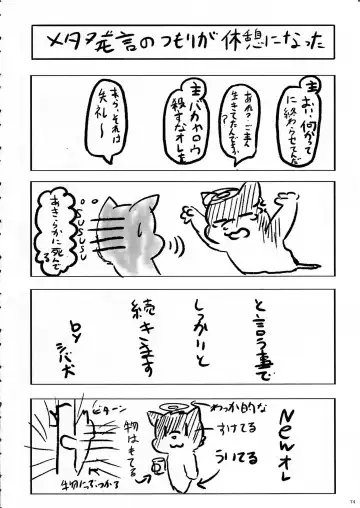 メタ発言のつもりが休憩になった
主
おい、何かって
に終わらせてんだ
あれ？ご主人
生きてたんですか？
主
バカヤロウ
殺すなオレを
あら、それは
失礼〜
SUSUSUSU
あきらかに死んで
る
と言う事で
しっかりと
続きます
by
シバ犬
Newオレ
わっか的な
すけてる
ういてる
物はもてる
ビターン
物にぶつかる
74